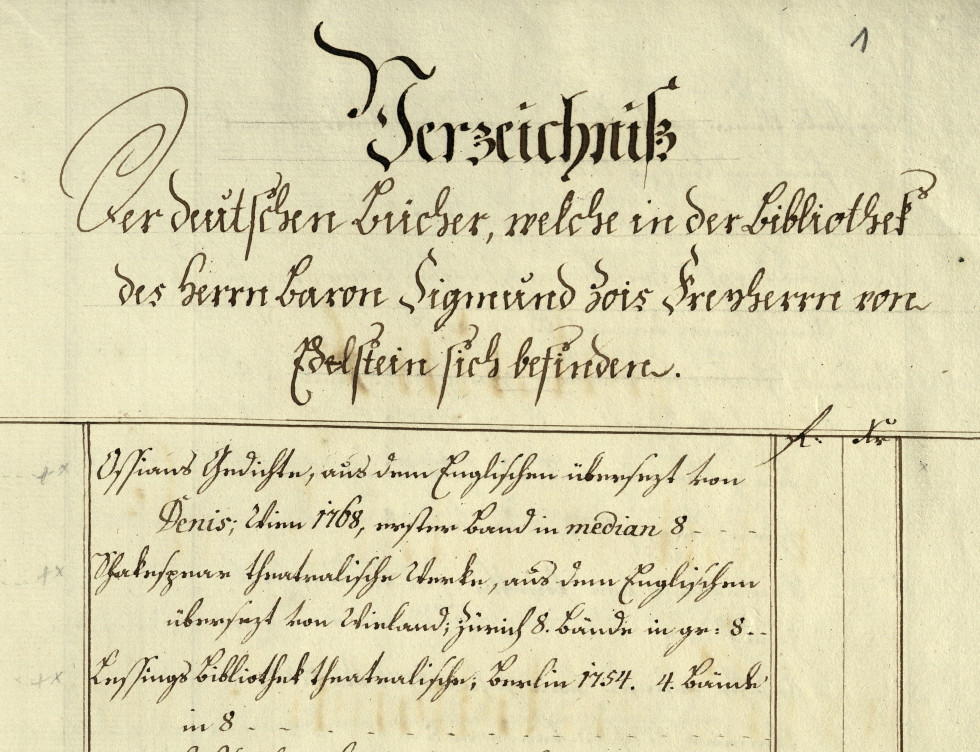 1
Verzeichniß
Der deutschen Bücher, welche in der Bibliothek
des Herrn Baron Sigmund Zois Freyherrn von
Edelstein sich befinden.
f: Kr
Ossians Gedichte, aus dem Englischen übersezt von
Denis; Wien 1768, erster Band in median 8 - - - -
Shakespear theatralische Werke, aus dem Englischen
übersezt von Wieland; Zürich 8. Bände in gr: 8 - -
Lessings Bibliothek theatralische; Berlin 1754. 4. Bände
in 8 - - - - - - - - - -